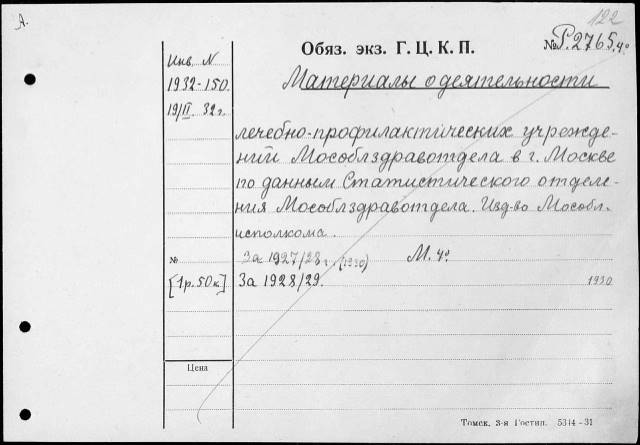 А.
122
Обяз. экз. Г. Ц. К. П.
№ Р.2765.4°
Инв. N
1932-150.
19/II 32 г.
Материалы о деятельности
лечебно-профилактических учрежде-
ний Мособлздравотдела в г. Москве
по данным Статистического отделе-
ния Мособлздравотдела. Изд-во Мособл-
исполкома.
№
За 1927/28 г. (1930)
М. 4°
[1 р. 50 к]
За 1928/29.
1930
Цена
Томск. 3-я Гостип. 5344-31